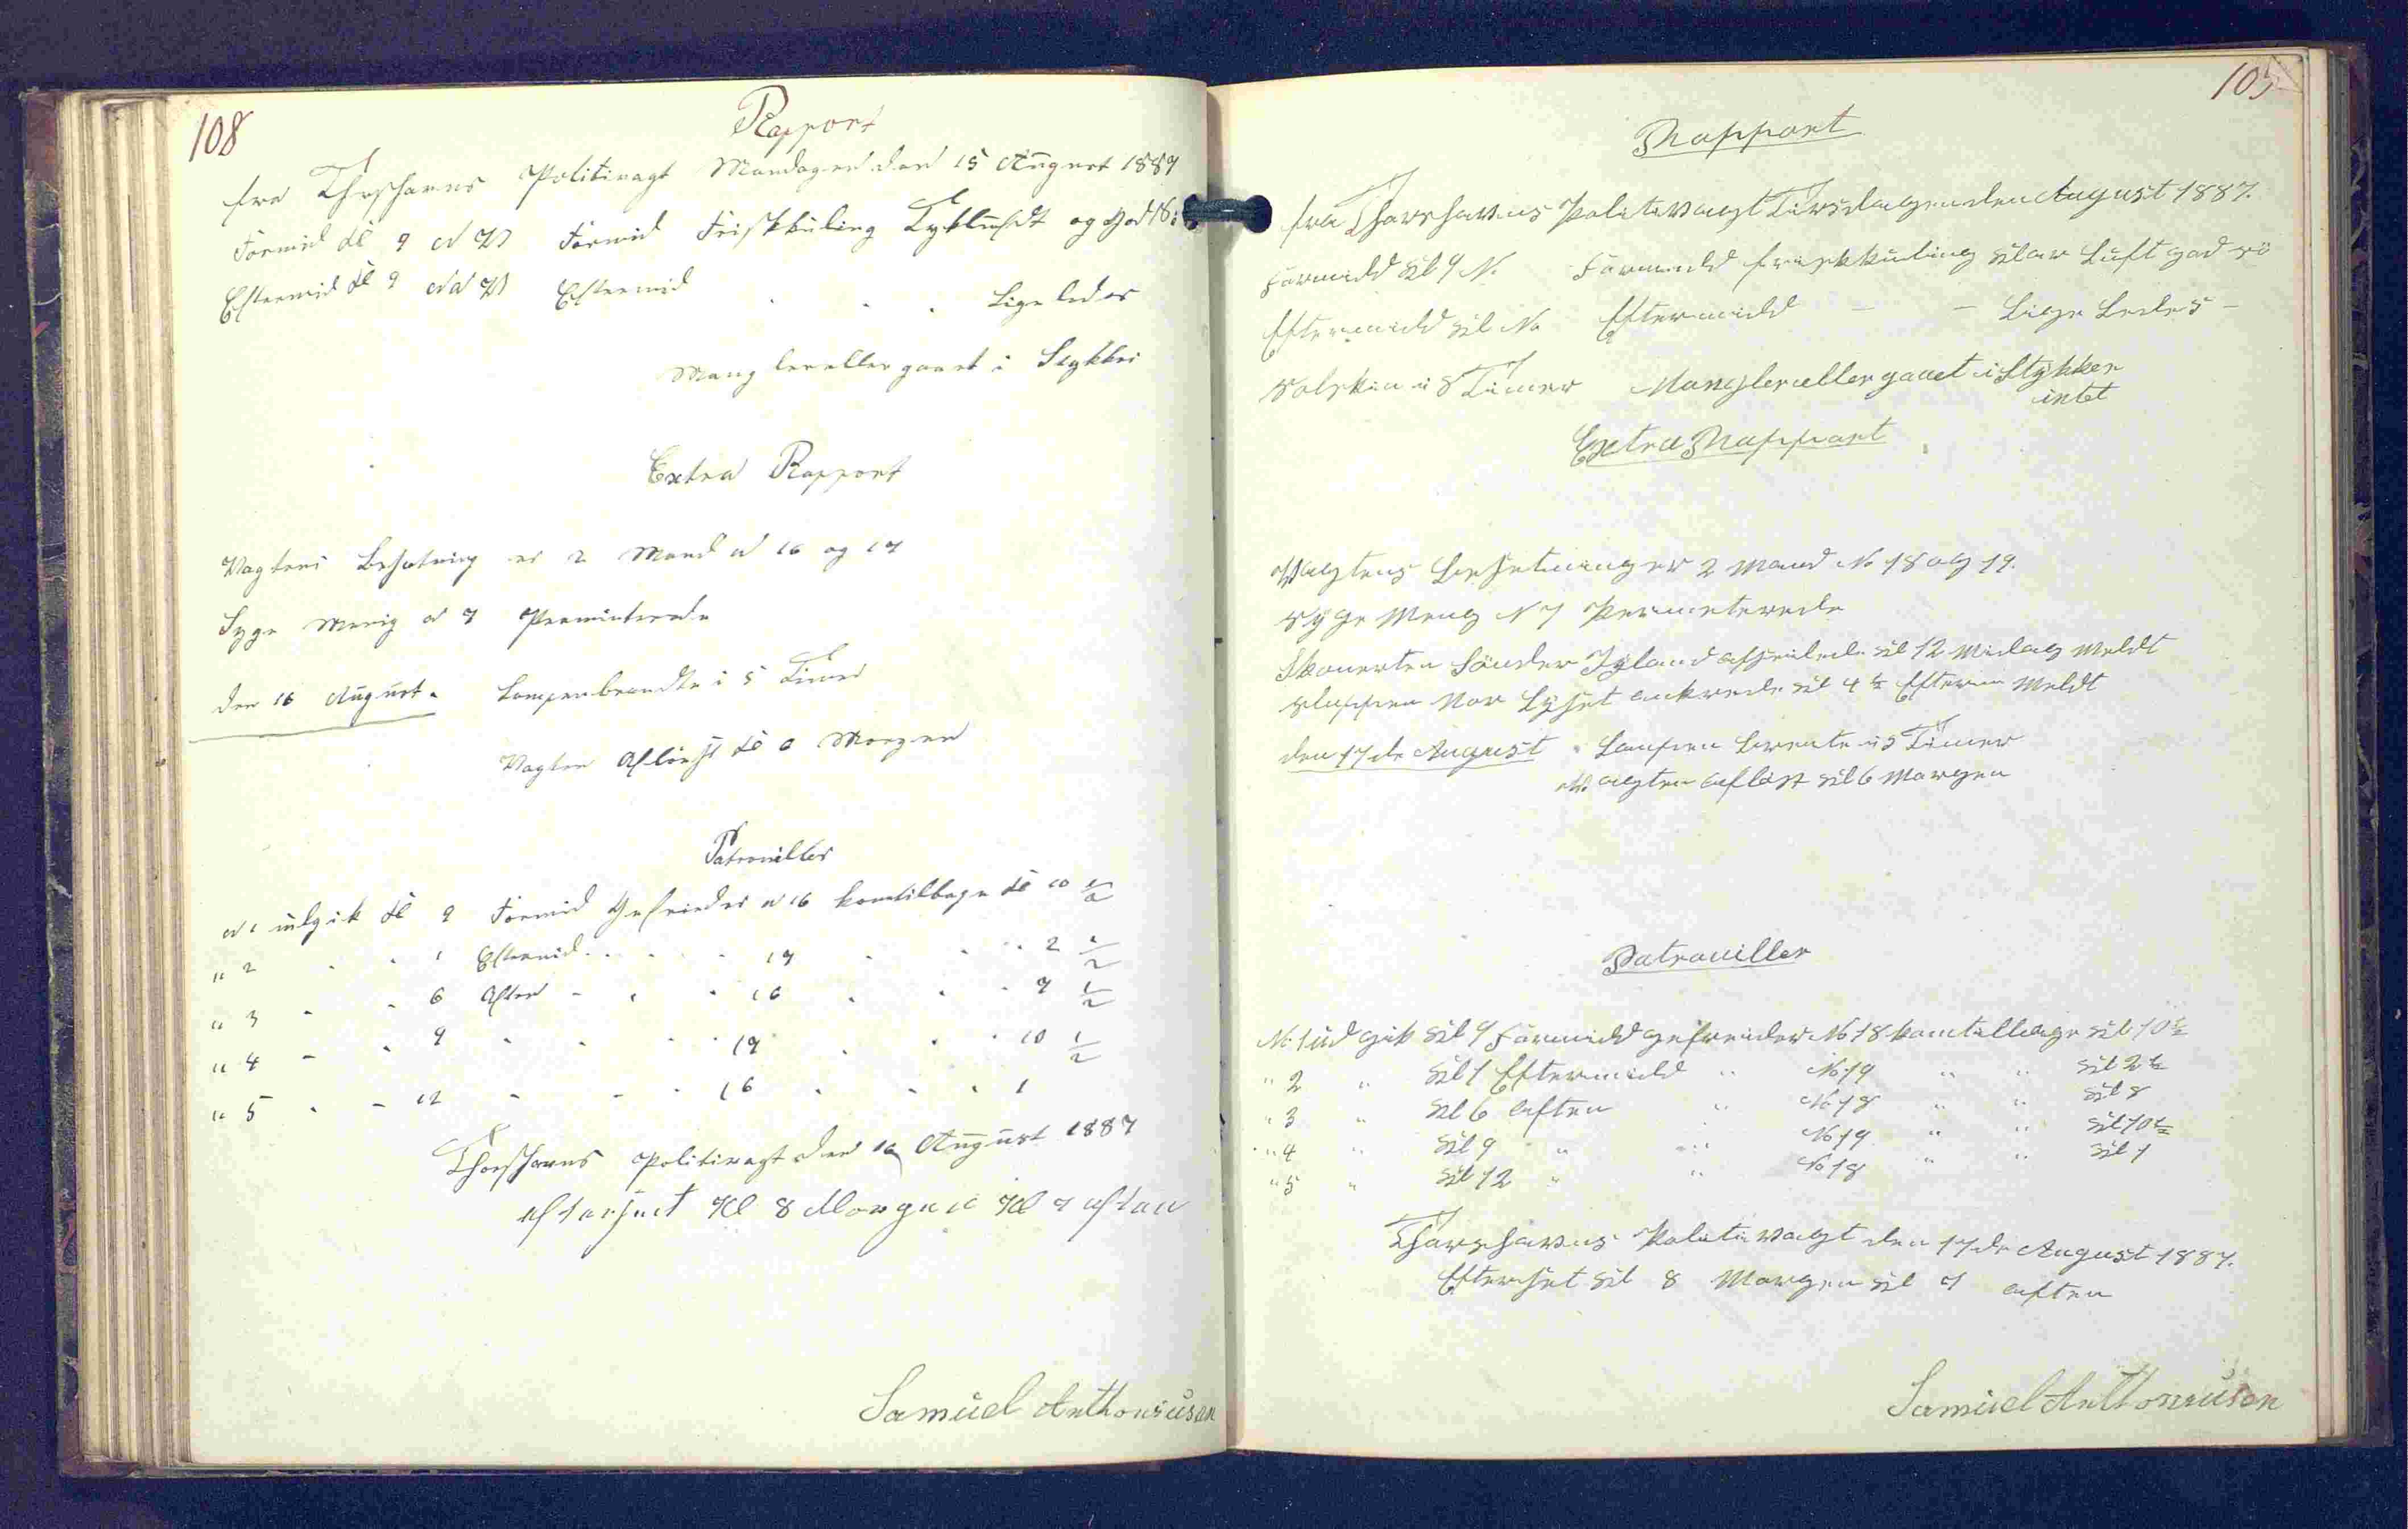 108
Rapport
fra Thorshavns Politivagt Mandagen den 15 August 1887
Formid Kl 9 N V Formid Friskkuling Tyklufdt og God Sö
Eftermid Kl 9 N V Eftermid . . . Ligeledes
Mangler eller gaaet i Stykker
Extra Rapport
Vagtens Besætning er 2 Mand N 16 og 17
Syge Menig N 7 Permiterede
den 16 August. Lampen brændte i 5 Timer
Vagten Aflöst Kl 6 Morgen
Patrouiller
N 1 udgik Kl 9 Formid Gefreider N 16 kom tilbage Kl 10 1/2
" 2 . . 1 Eftermid . . . 17 . . . 2 1/2
" 3 - . 6 Aften - . . 16 . . . 7 1/2
" 4 - . 9 . . . . 17 . . . 10 1/2
" 5 . - 12 - - . 16 . . . 1
Thorshavns Politivagt den 16 August 1887
efterseet Kl 8 Morgen Kl 7 aften
Samuel Anthoniusen
105
Rapport
fra Thorshavns Politivagt Tirsdagen den August 1887.
Formidd Kl 9 N. Formidd friskkuling Klar Luft god sö
Eftermidd Kl N Eftermidd - - Lige Ledes -
Solskin i 8 Timer Mangler eller gaaet i Stykker
intet
Extra Rapport
Vagtens Besetning er 2 Mand No 18 og 19.
Syge Meng N 7 Permeterede
Skonerten Sönder Jyland afseilede Kl 12 Midag Meldt
Sluppen Nor Lyset ankrede Kl 4 1/2 Efterm Meldt
den 17de August. Lampen brente i 5 Timer
Vagten aflöst Kl 6 Morgen
Patrouiller
No 1 ud gik Kl 9 Formidd gefreider No 18 kom tilbage Kl 10 1/2
" 2 " Kl 1 Eftermidd " No 19 " " Kl 2 1/2
" 3 " Kl 6 aften " No 18 " " Kl 8
" 4 " Kl 9 " " No 19 " " Kl 10 1/2
" 5 " Kl 12 " " No 18 " " Kl 1
Thorshavns Politivagt den 17de August 1887.
Efterset Kl 8 Morgen Kl 7 aften
Samuel Anthoniusen